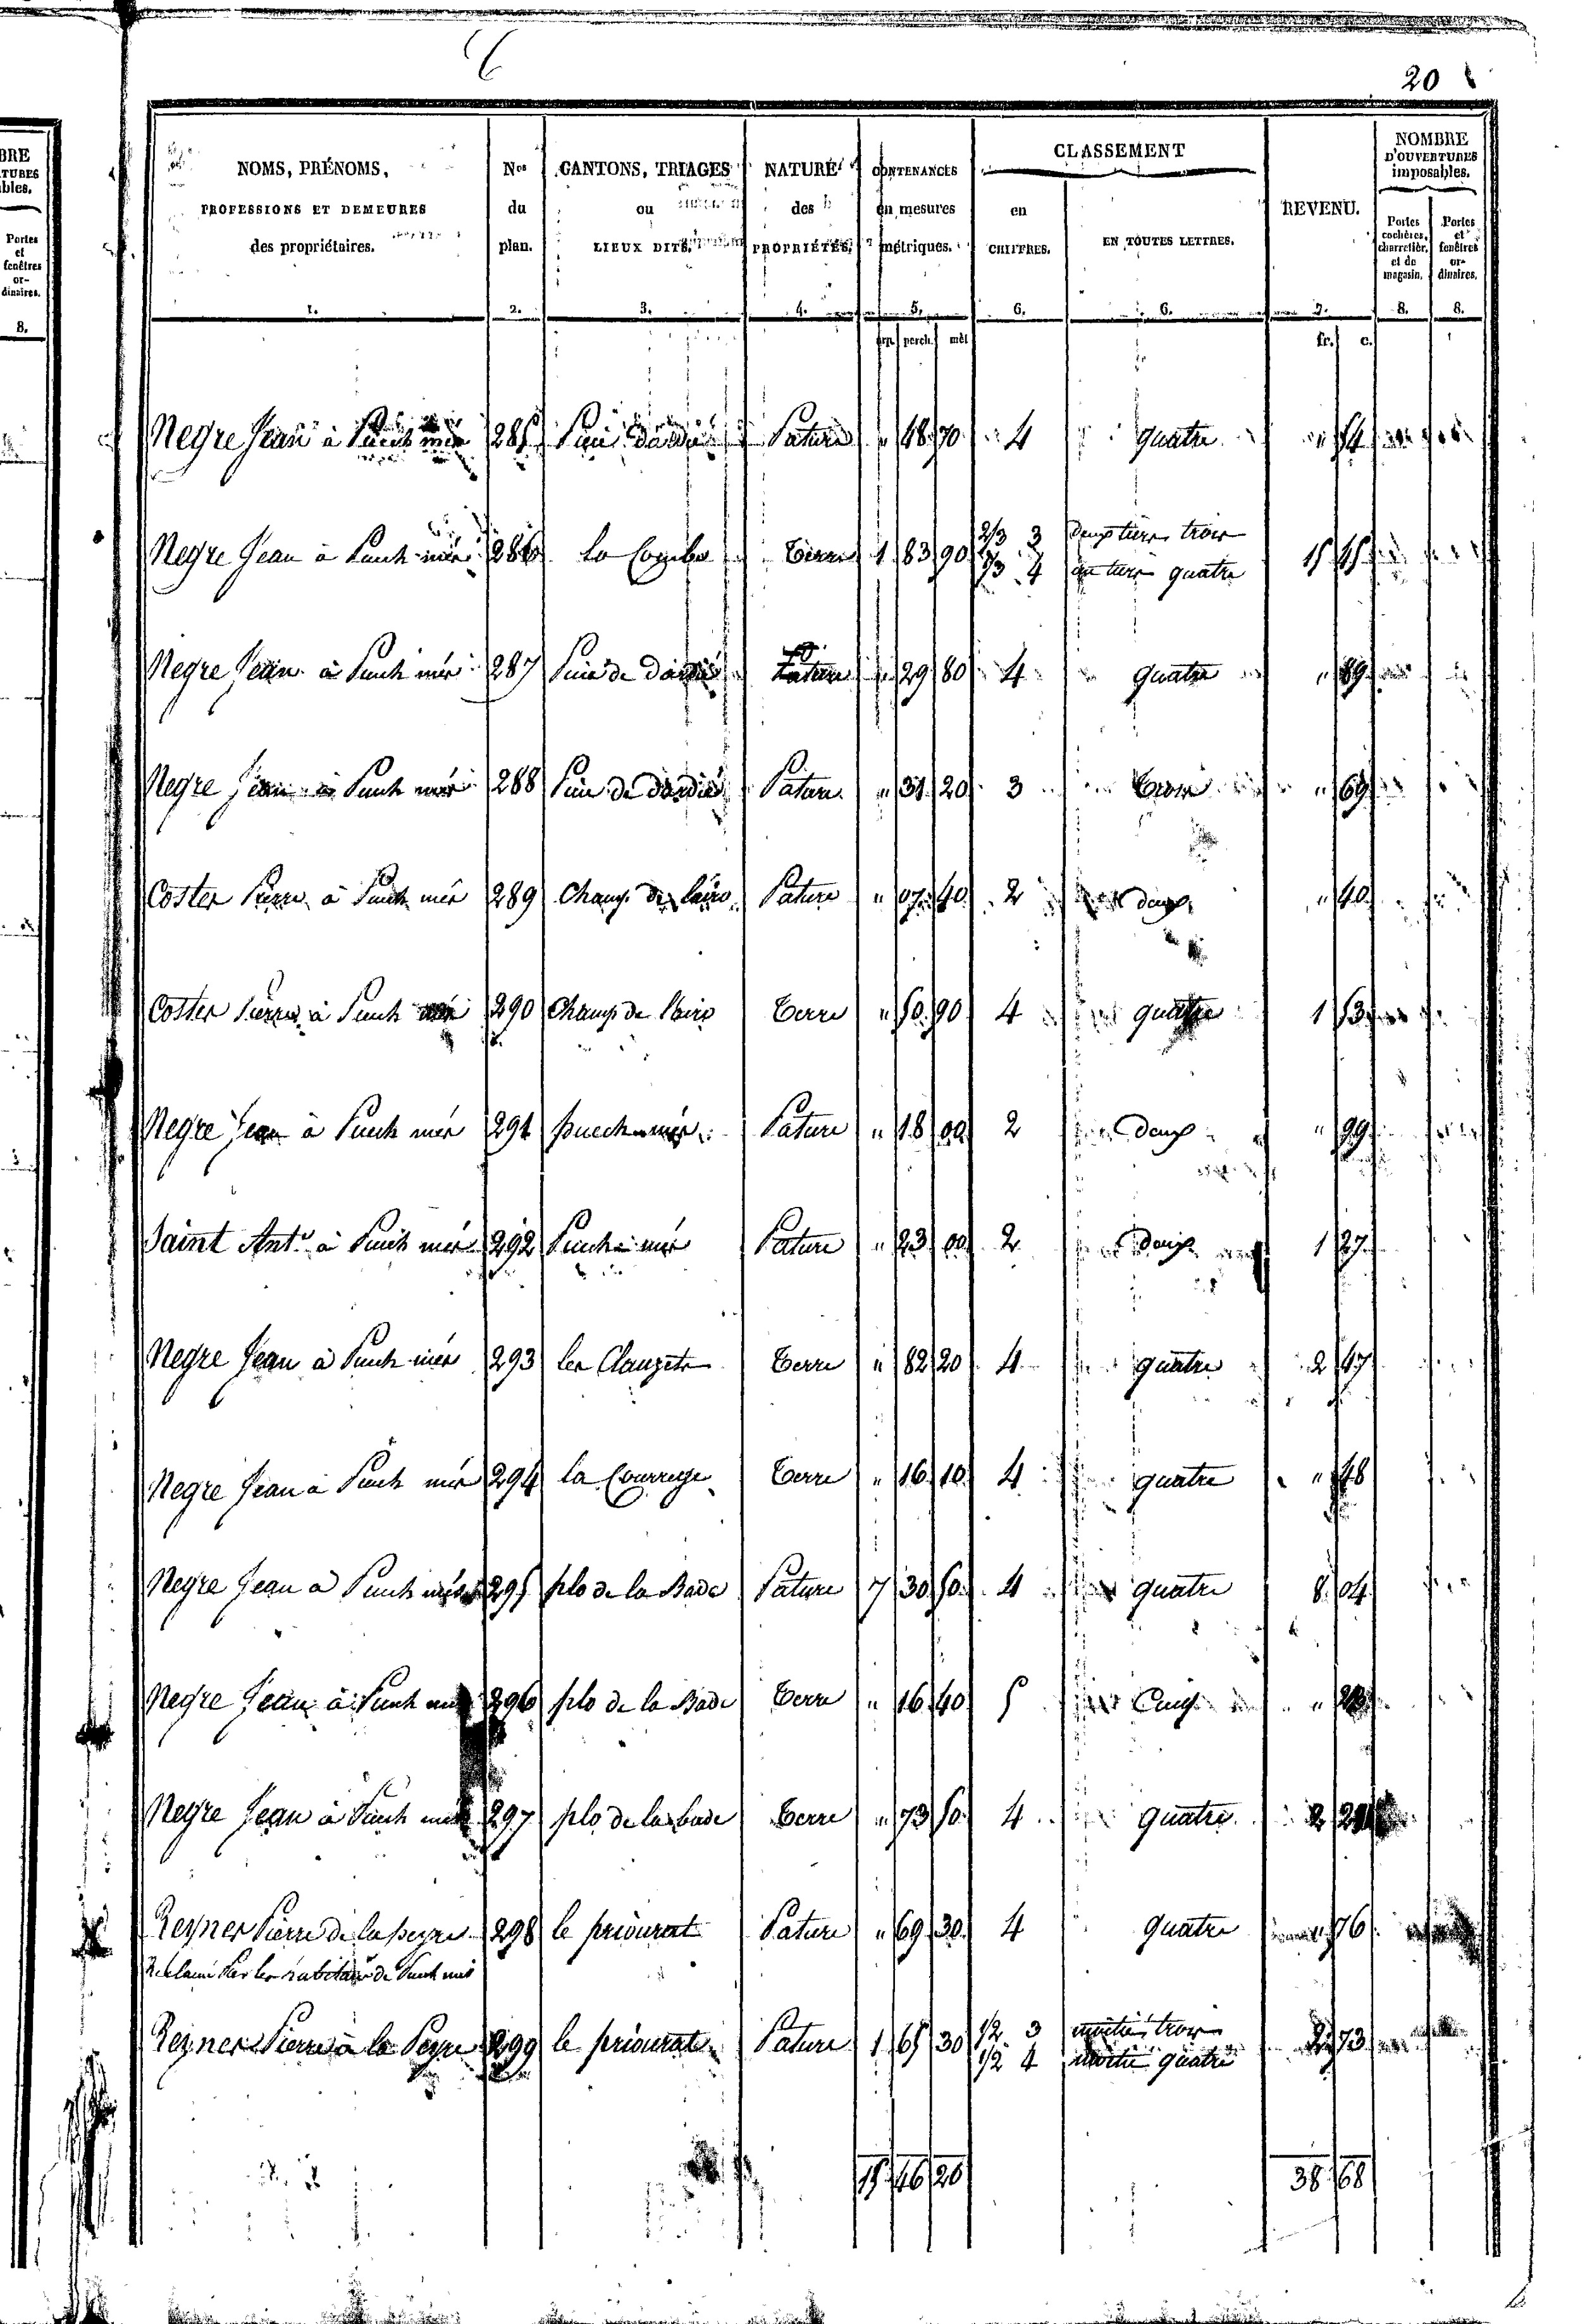 20
NOMBRE
NOMS, PRÉNOMS, Nos CANTONS, TRIAGES NATURE CONTENANCES CLASSEMENT D'OUVERTURES
imposables.
PROFESSIONS ET DEMEURES du ou des en mesures en REVENU. Portes cochères, charretièr. et de magasin. Portes et fenêtres or-dinaires.
des propriétaires. plan. LIEUX DITS. PROPRIÉTÉS. métriques. CHIFFRES. EN TOUTES LETTRES.
1. 2. 3. 4. 5. 6. 6. 7. 8. 8.
arp. perch. mèt. fr. c.
Negre Jean à Puech mér 285 Pature " 48 70 4 quatre " 54
Negre Jean à Puech mér 286 la Combe Terre 1 83 90 2/3 3 deux tiers trois 15 45
1/3 4 un tiers quatre
Negre Jean à Puech mér 287 Pature " 29 80 4 quatre "
Negre Jean à Puech mér 288 Pature " 31 20 3 trois " 69
Coster Pierre à Puech mér 289 Champ de Pature " 07 40 2 deux " 40
Coster Pierre à Puech mér 290 Champ de Terre " 50 90 4 quatre 1 53
Negre Jean à Puech mér 291 puech mér Pature " 18 00 2 deux " 99
Saint Ant.e à Puech mér 292 Puech mér Pature " 23 00 2 deux 1 27
Negre Jean à Puech mér 293 les Clauzets Terre " 82 20 4 quatre 2 47
Negre Jean à Puech mér 294 la Courrege Terre " 16 10 4 quatre " 48
Negre Jean à Puech mér 295 plo de la Bade Pature 7 30 50 4 quatre 8 04
Negre Jean à Puech mér 296 plo de la Bade Terre " 16 40 5 Cinq "
Negre Jean à Puech mér 297 plo de la bade Terre " 73 50 4 quatre 2
Reyner Pierre de la peyre 298 le priourat Pature " 69 30 4 quatre " 76
Réclamé Par les habitans de Puech mér
Reyner Pierre à la Peyre 299 le priourat Pature 1 65 30 1/2 3 moitié trois 2 73
1/2 4 moitié quatre
15 46 20 38 68
BRE
TURES
bles.
Portes
et
fenêtres
or-
dinaires.
8.